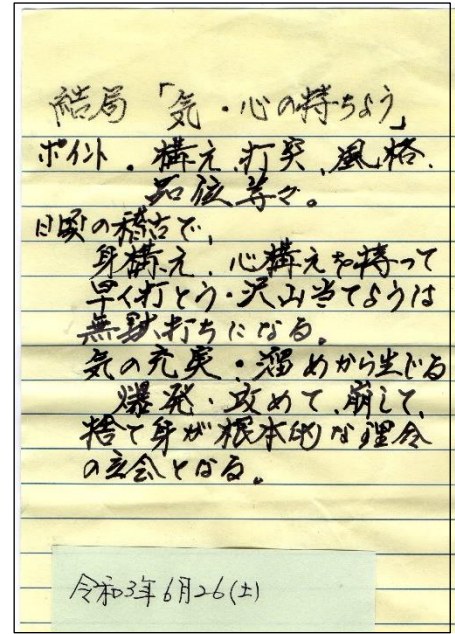 結局「気・心の持ちよう」
ポイント・構え、打突、風格、
品位等々。
日頃の稽古で、
身構え、心構えを持って
早く打とう・沢山当てようは
無駄打ちになる。
気の充実・溜めから生じる
爆発・攻めて、崩して、
捨て身が根本的な理合
の立会となる。
令和3年6月26(土)